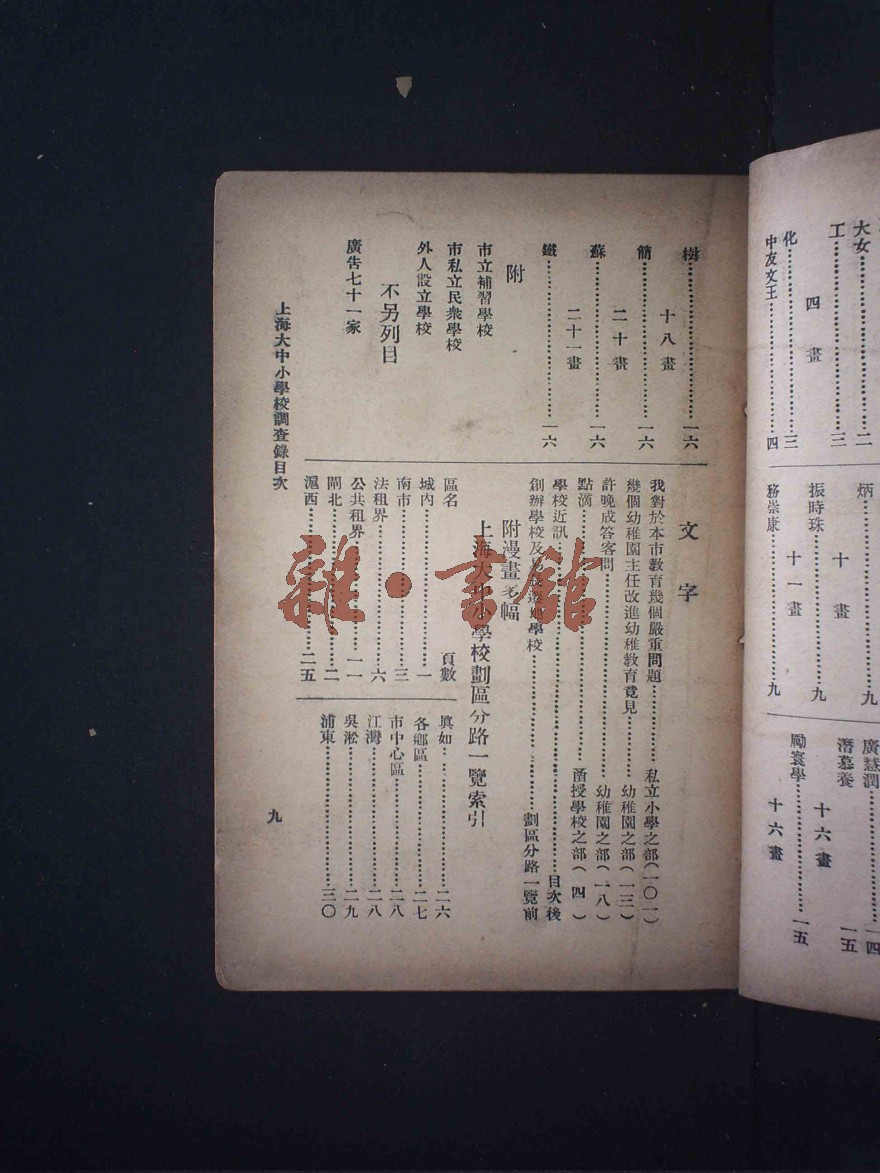 樹……一六
十八畫
簡……一六
二十畫
蘇……一六
二十一畫
鐵……一六
附
市立補習學校
市私立民衆學校
外人設立學校
不另列目
廣告七十一家
文字
我對於本市教育幾個嚴重問題……私立小學之部(一〇一)
幾個幼稚園主任改進幼稚教育意見……幼稚園之部(一三)
許晚成答客問……幼稚園之部(一八)
點滴……函授學校之部(四)
學校近訊……目次後
創辦學校及……學校……劃區分路一覽前
附漫畫多幅
上海大中小學校劃區分路一覽索引
區名 頁數
城內……一
南市……三
法租界……六
公共租界……一一
閘北……二
滬西……二五
眞如……二六
各鄉區……二七
市中心區……二八
江灣……二八
吳淞……二九
浦東……三〇
上海大中小學校調查錄目次
九
大女……二
工……三
四畫
化……三
中友文王……四
炳……九
十畫
振時珠……九
十一畫
務崇康……九
廣慧潤……一四
潛慕養……一五
十六畫
勵寰學……一五
十六畫
雜·書館